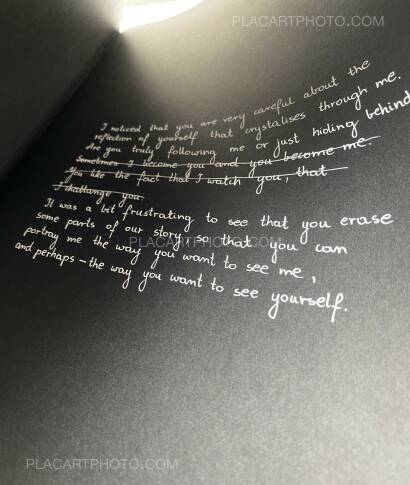 PLACARTPHOTO.COM
I noticed that you are very careful about the
reflection of yourself that crystalises through me.
Are you truly following me or just hiding behind
Sometimes I become you and you become me.
You like the fact that I watch you, that
I challange you
It was a bit frustrating to see that you erase
some parts of our story, so that you can
PLACARTPHOTO.COM
portray me the way you want to see me,
and perhaps – the way you want to see yourself.
PLACARTPHOTO.COM